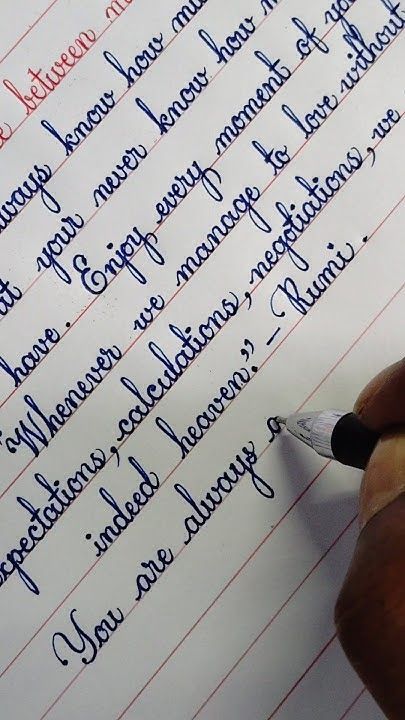 between
always know how
your never know how
have. Enjoy every moment of
"Whenever we manage to love without
expectations, calculations, negotiations, we
indeed heaven." - Rumi.
You are always a